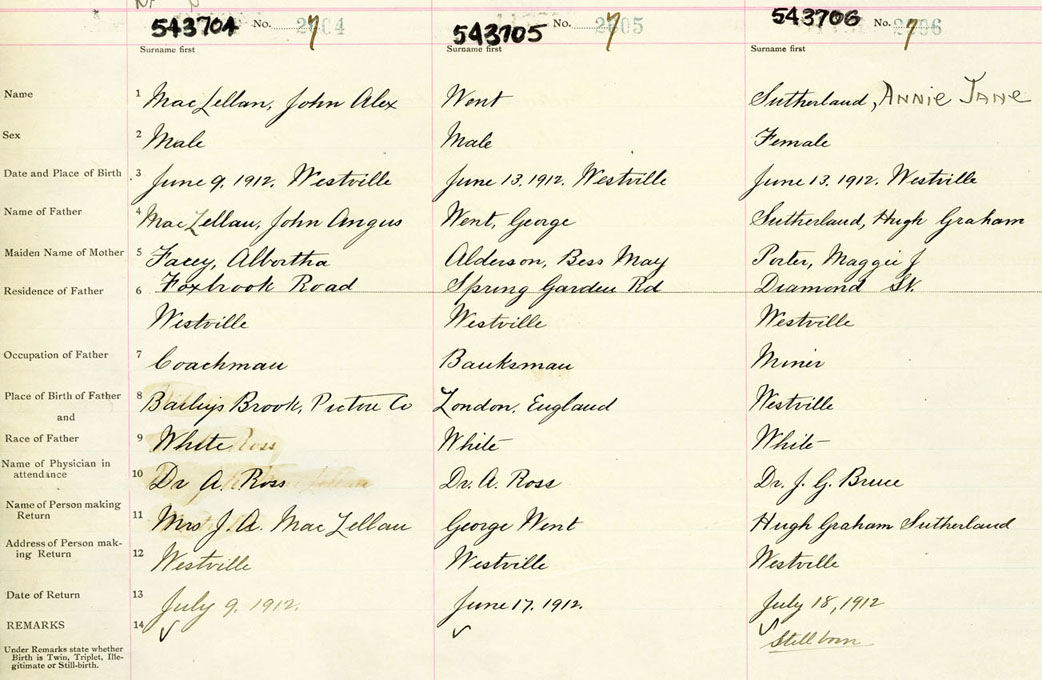 543704 No. 7 543705 No. 7 543706 No. 7
Surname first Surname first Surname first
Name 1 MacLellan, John Alex Went Sutherland, Annie Jane
Sex 2 Male Male Female
Date and Place of Birth 3 June 9, 1912. Westville June 13, 1912. Westville June 13, 1912. Westville
Name of Father 4 MacLellan, John Angus Went, George Sutherland, Hugh Graham
Maiden Name of Mother 5 Facey, Albertha Alderson, Bess May Porter, Maggie J
Residence of Father 6 Foxbrook Road Spring Garden Rd Diamond St.
Westville Westville Westville
Occupation of Father 7 Coachman Banksman Miner
Place of Birth of Father 8 Baileys Brook, Pictou Co London, England Westville
and
Race of Father 9 White White White
Name of Physician in
attendance 10 Dr A. Ross Dr. A. Ross Dr. J. G. Bruce
Name of Person making
Return 11 Mrs J. A. MacLellan George Went Hugh Graham Sutherland
Address of Person mak-
ing Return 12 Westville Westville Westville
Date of Return 13 July 9, 1912. June 17, 1912. July 18, 1912
REMARKS 14 Stillborn
Under Remarks state whether
Birth is Twin, Triplet, Ille-
gitimate or Still-birth.